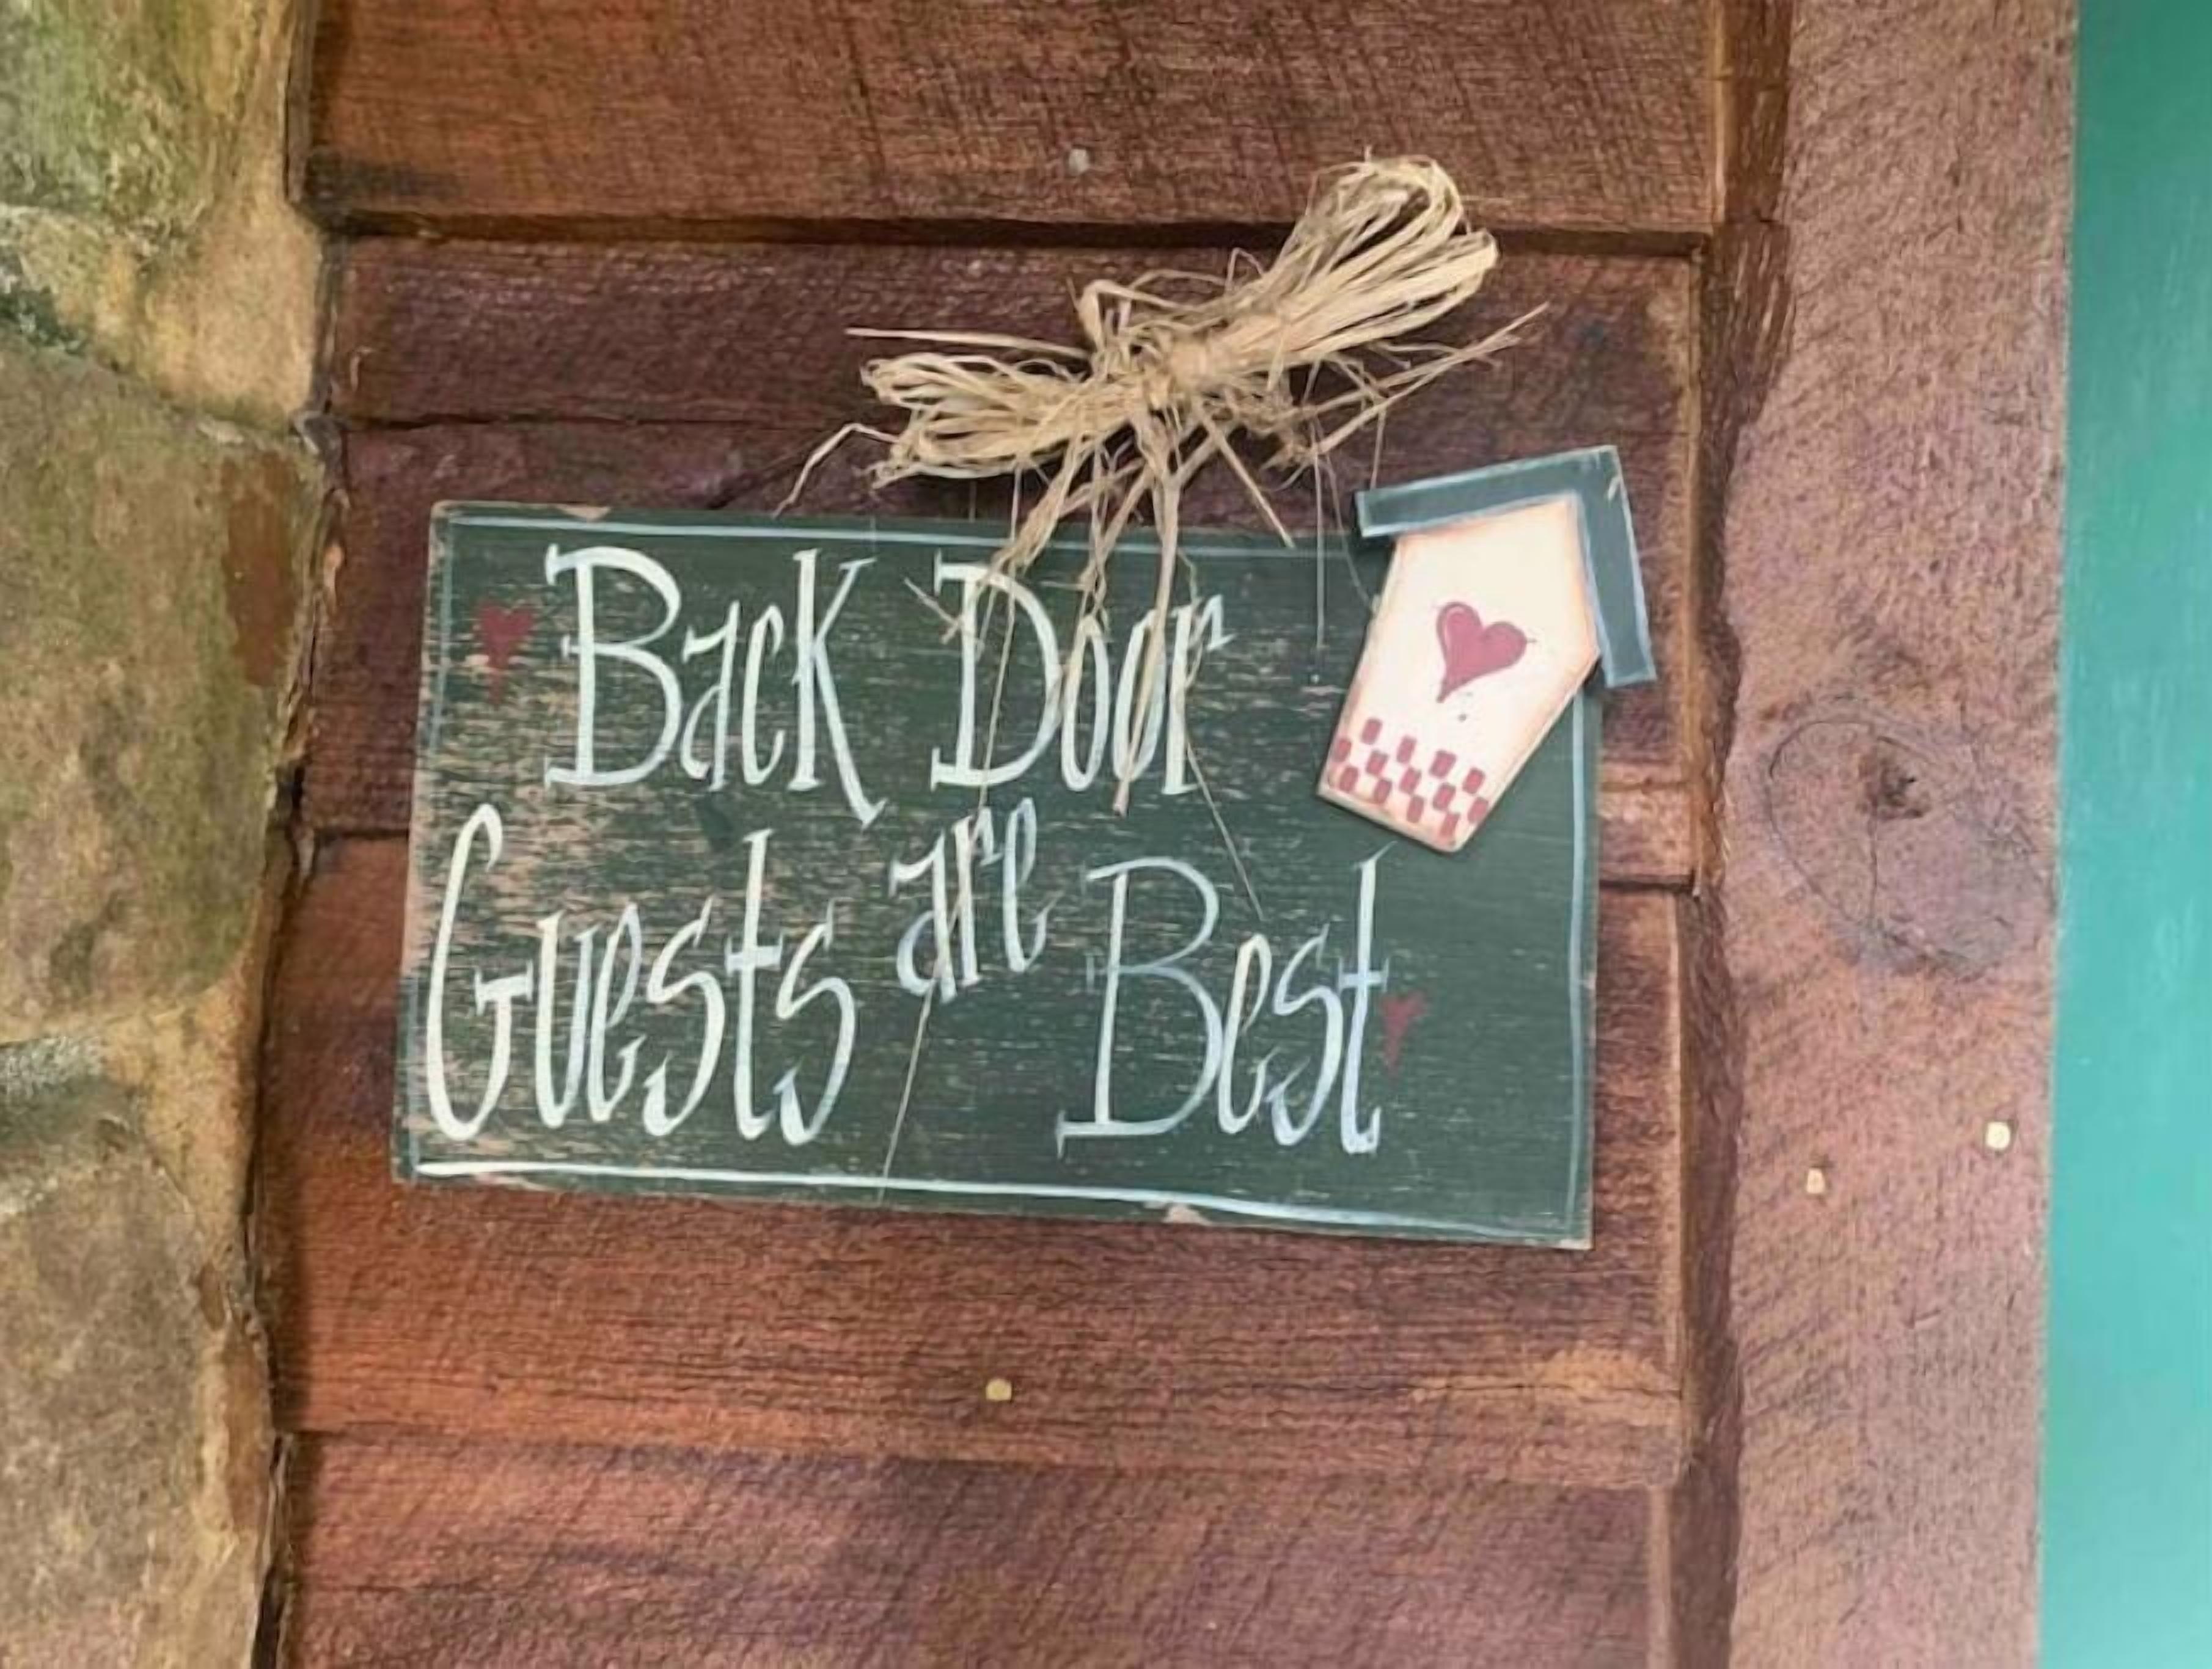 Back Door
Guests are Best